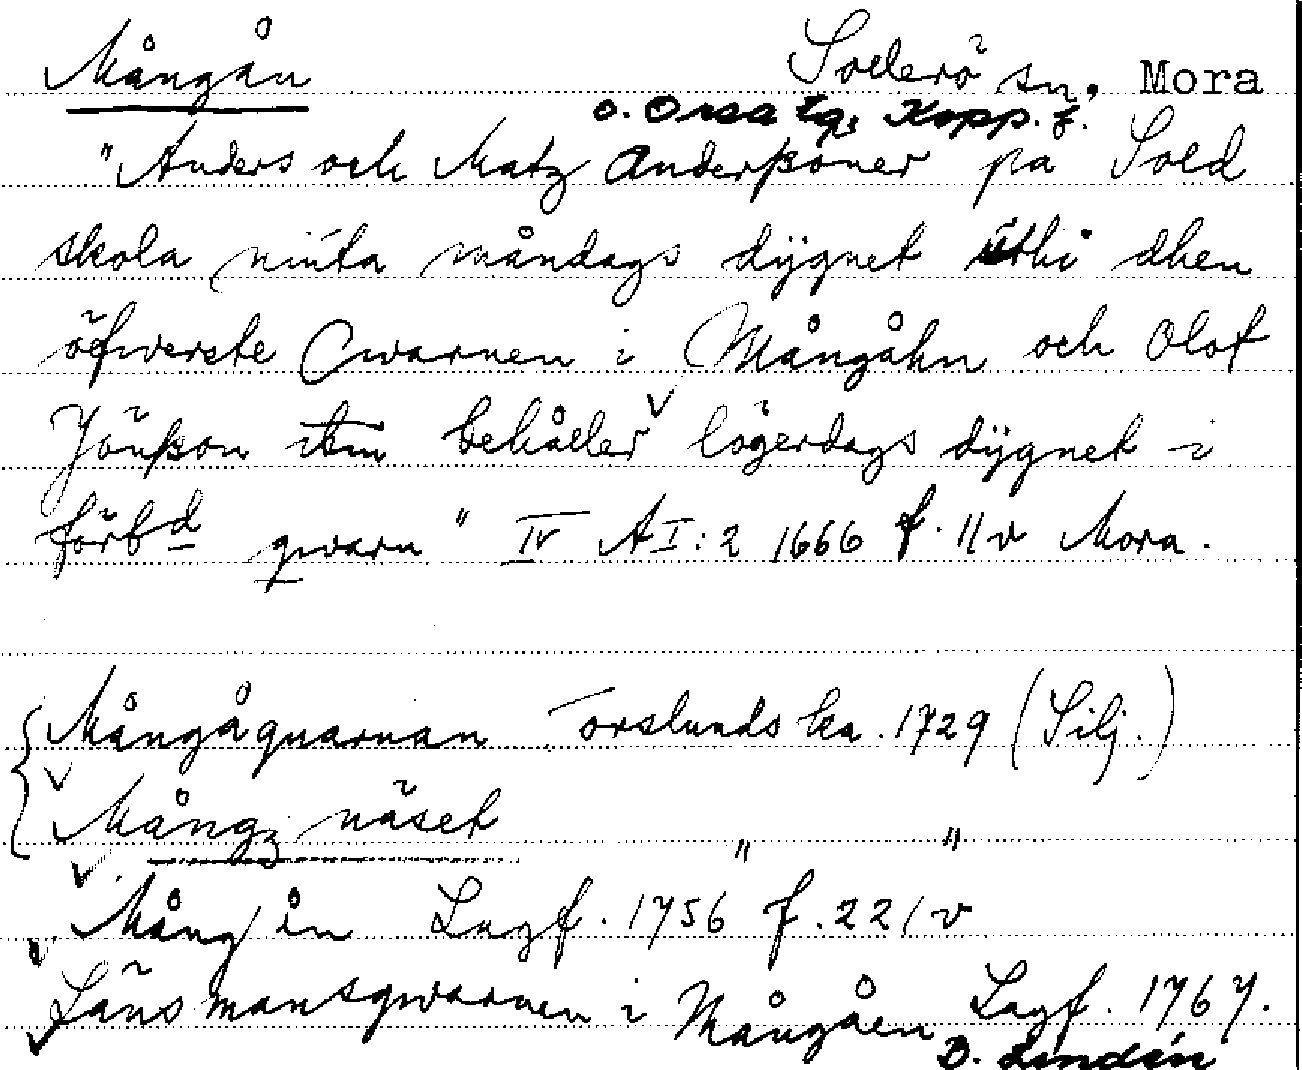 Mångån Sollerö sn, Mora
o. Orsa tg, Kopp. l.
"Anders och Matz Anderßöner på Sold
skola niuta måndags dÿgnet uthi dhen
öfwerste Qwarnen i Mångåhn och Olof
Jönßon item behåller lögerdags dÿgnet i
förbd qwarn" IV A I:2 1666 f. 11v Mora.
Mångåquarnan Torslunds ka. 1729 (Silj.)
Mångz näset " "
Mång ån Lagf. 1756 f. 221v
Länsmansqwarnen i Mångåen Lagf. 1767.
B. Lindén